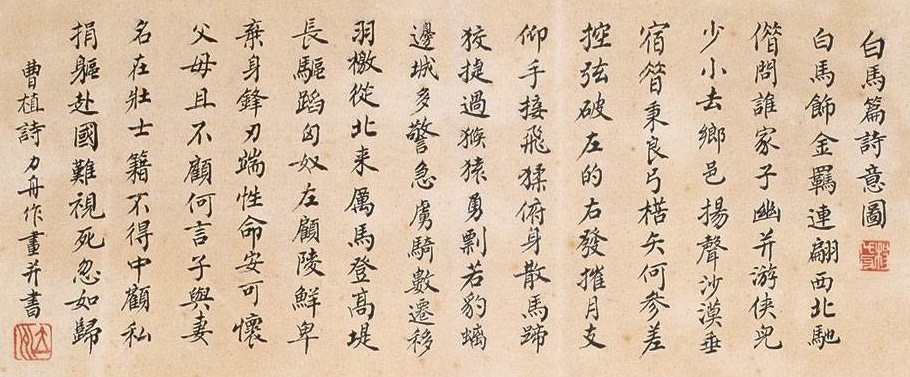 白馬篇詩意圖
白馬飾金羈連翩西北馳
借問誰家子幽并游俠兒
少小去鄉邑揚聲沙漠垂
宿昔秉良弓楛矢何參差
控弦破左的右發摧月支
仰手接飛猱俯身散馬蹄
狡捷過猴猿勇剽若豹螭
邊城多警急虜騎數遷移
羽檄從北来厲馬登高堤
長驅蹈匈奴左顧陵鮮卑
棄身鋒刃端性命安可懷
父母且不顧何言子與妻
名在壯士籍不得中顧私
捐軀赴國難視死忽如歸
曹植詩力舟作畫并書